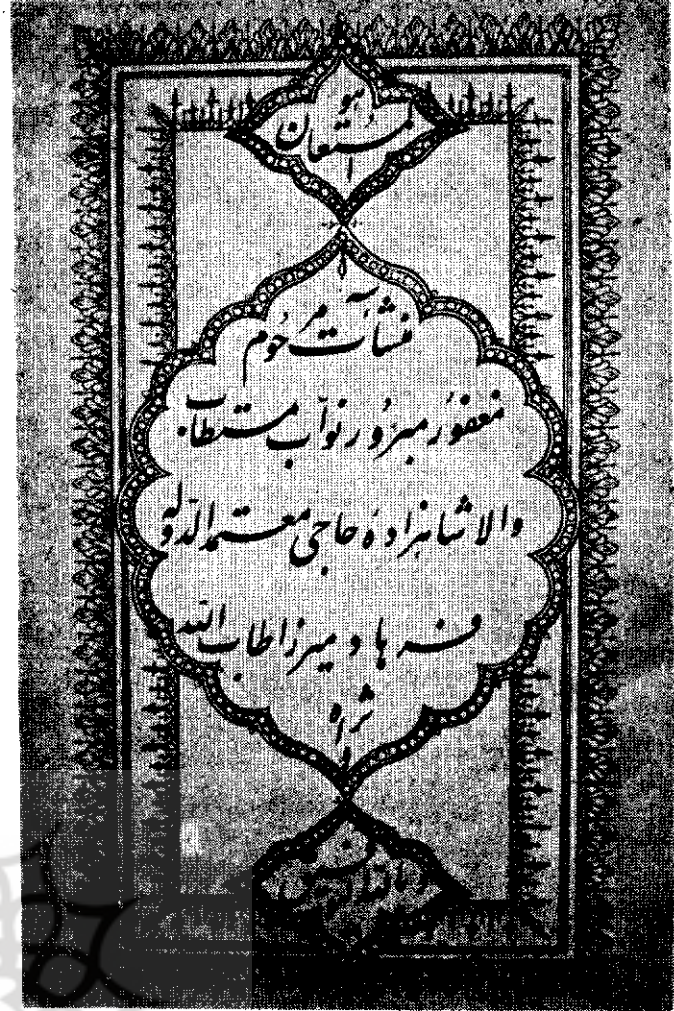 هو
المستعان
منشآت مرحوم
مغفور مبرور نواب مستطاب
والا شاهزاده حاجی معتمد الدوله
فرهاد میرزا طاب الله
ثراه